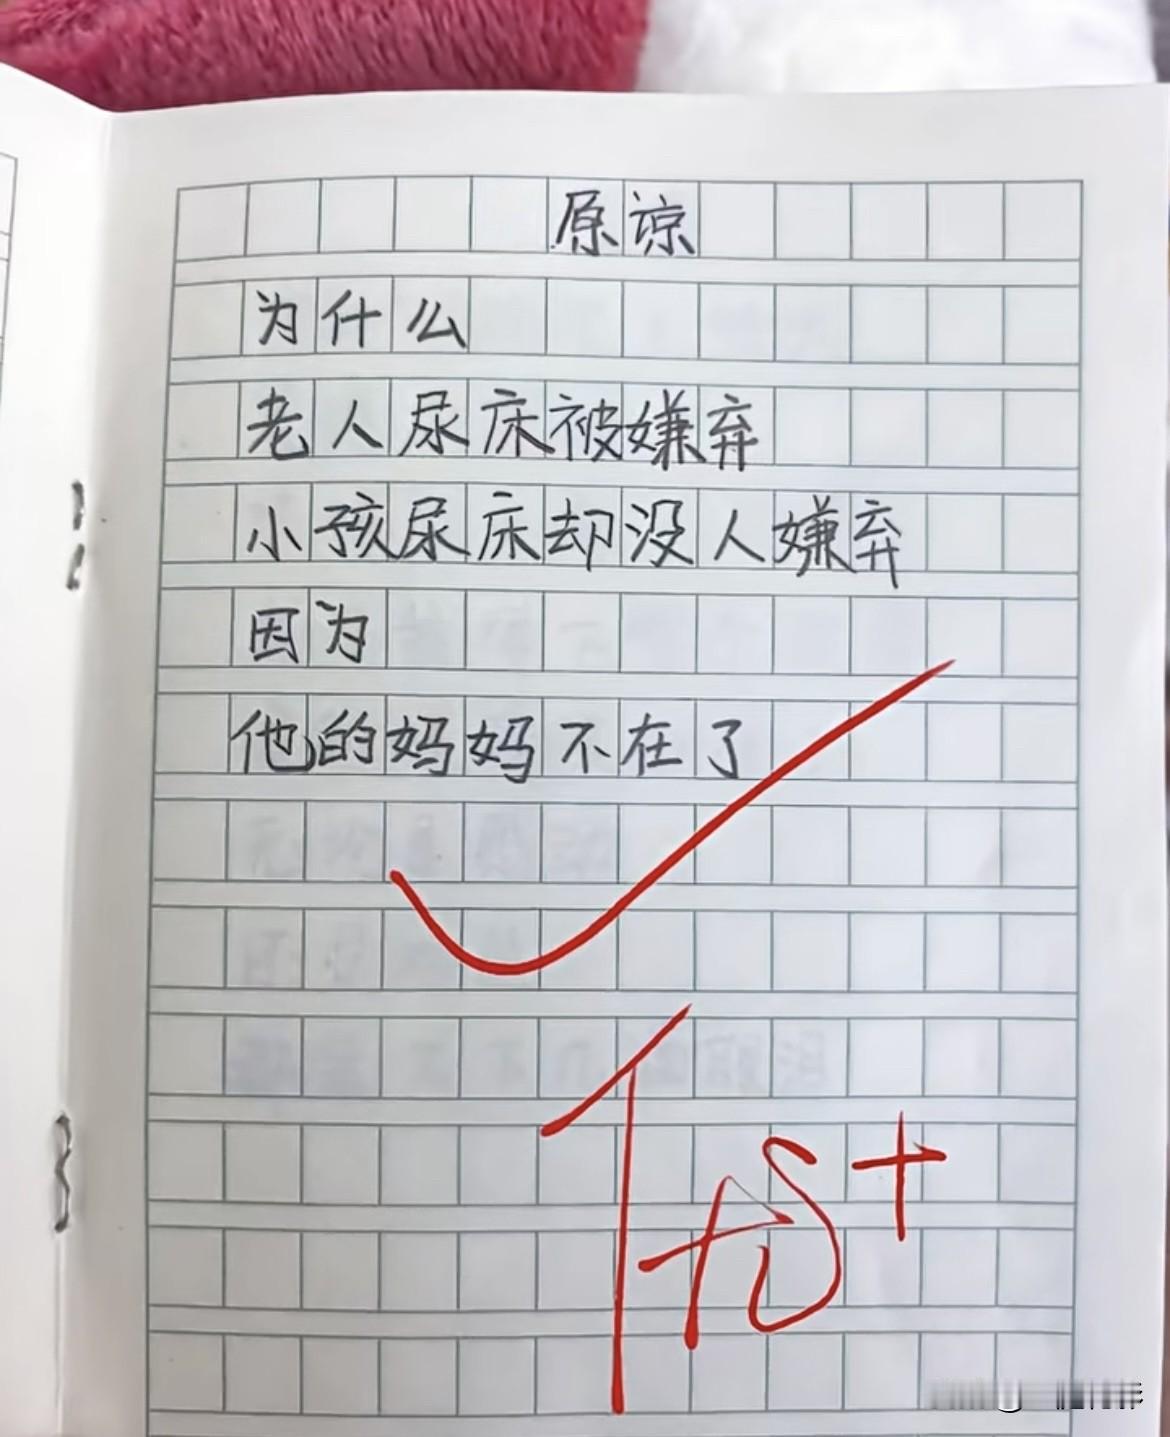 原谅
为什么
老人尿床被嫌弃
小孩尿床却没人嫌弃
因为
他的妈妈不在了
优+